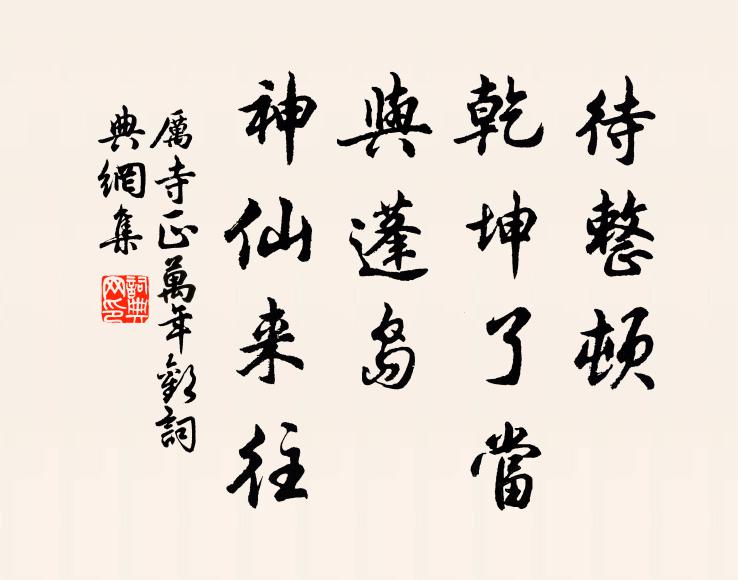 待整頓
乾坤了當
與蓬島
神仙来往
厲寺正萬年歡詞
典網集
詞典網印